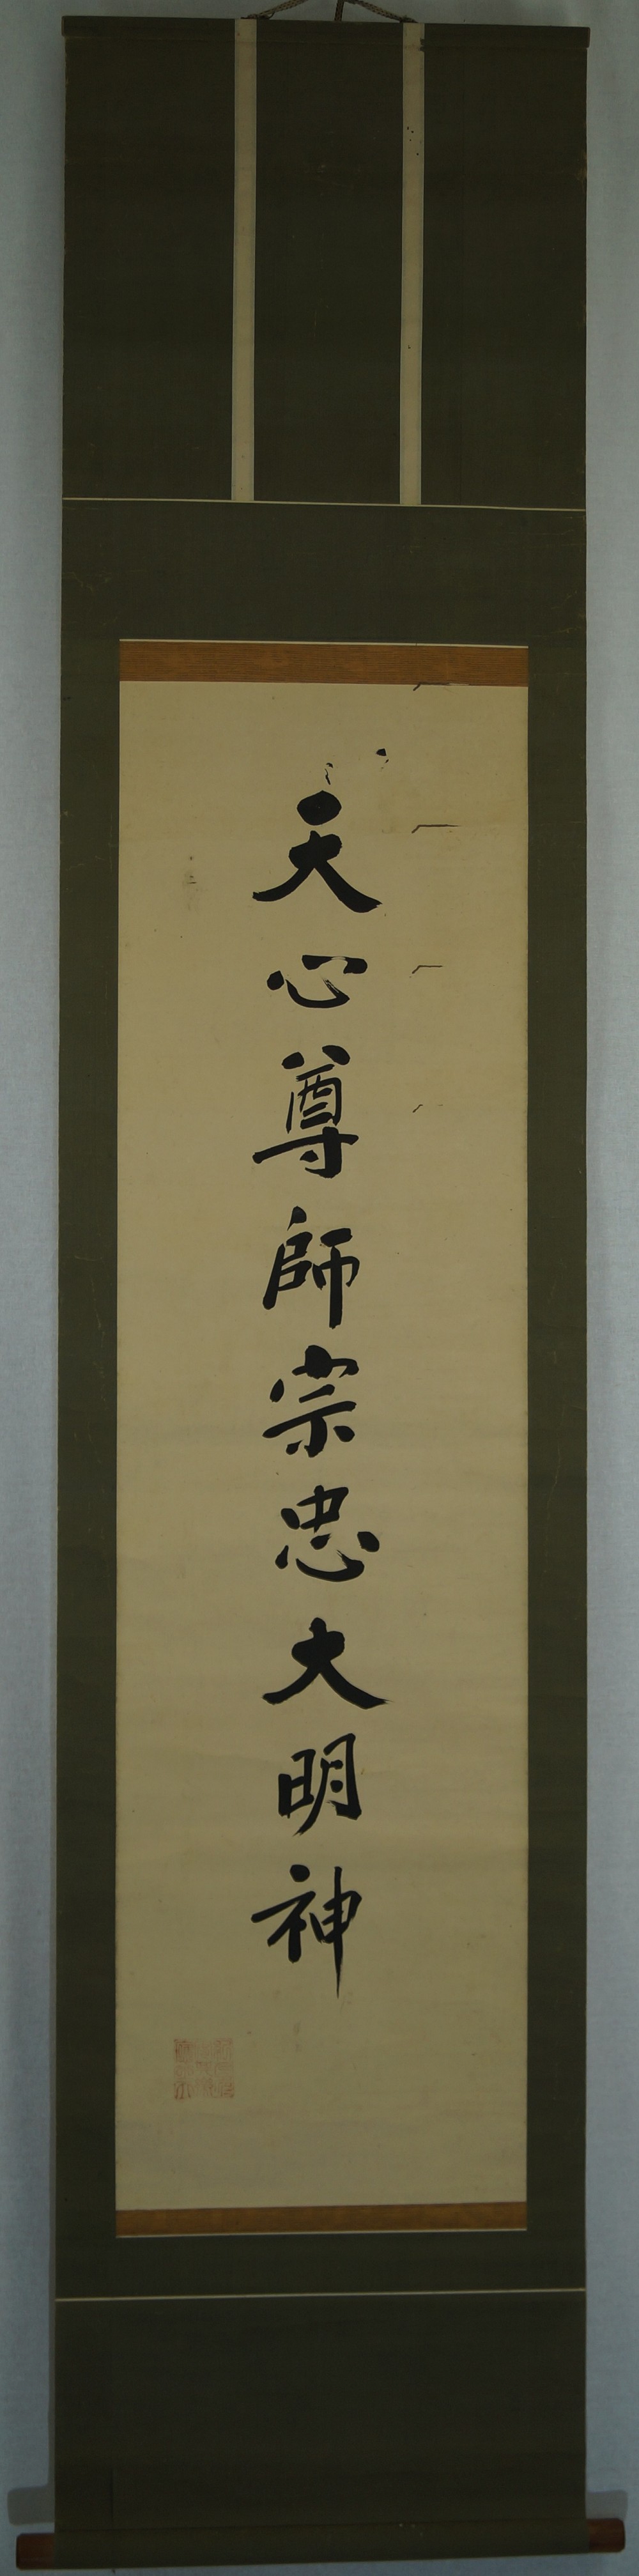 天心尊師宗忠大明神